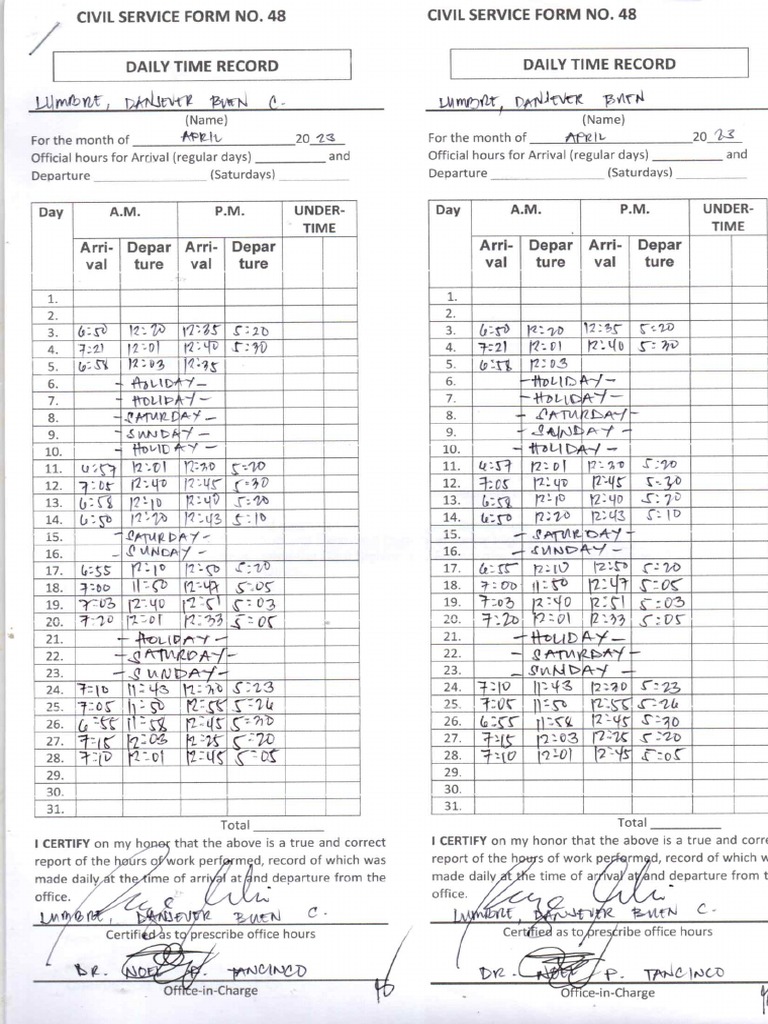 CIVIL SERVICE FORM NO. 48
DAILY TIME RECORD
LUMBRE, DANJEVER BUEN C.
(Name)
For the month of APRIL 2023
Official hours for Arrival (regular days) __________ and
Departure __________ (Saturdays) __________
Day A.M. P.M. UNDER-TIME
Arri-val Depar ture Arri-val Depar ture
1.
2.
3. 6:50 12:20 12:35 5:20
4. 7:21 12:01 12:40 5:30
5. 6:58 12:03 12:35
6. - HOLIDAY -
7. - HOLIDAY -
8. - SATURDAY -
9. - SUNDAY -
10. - HOLIDAY -
11. 6:57 12:01 12:30 5:20
12. 7:05 12:40 12:45 5:30
13. 6:58 12:10 12:40 5:20
14. 6:50 12:20 12:43 5:10
15. - SATURDAY -
16. - SUNDAY -
17. 6:55 12:10 12:50 5:20
18. 7:00 11:50 12:47 5:05
19. 7:03 12:40 12:51 5:03
20. 7:20 12:01 12:33 5:05
21. - HOLIDAY -
22. - SATURDAY -
23. - SUNDAY -
24. 7:10 11:43 12:30 5:23
25. 7:05 11:50 12:55 5:26
26. 6:55 11:58 12:45 5:30
27. 7:15 12:03 12:25 5:20
28. 7:10 12:01 12:45 5:05
29.
30.
31.
Total __________
I CERTIFY on my honor that the above is a true and correct
report of the hours of work performed, record of which was
made daily at the time of arrival at and departure from the
office.
LUMBRE, DANJEVER BUEN C.
Certified as to prescribe office hours
DR. NOEL P. TANCINCO
Office-in-Charge
CIVIL SERVICE FORM NO. 48
DAILY TIME RECORD
LUMBRE, DANJEVER BUEN
(Name)
For the month of APRIL 2023
Official hours for Arrival (regular days) __________ and
Departure __________ (Saturdays) __________
Day A.M. P.M. UNDER-TIME
Arri-val Depar ture Arri-val Depar ture
1.
2.
3. 6:50 12:20 12:35 5:20
4. 7:21 12:01 12:40 5:30
5. 6:58 12:03
6. - HOLIDAY -
7. - HOLIDAY -
8. - SATURDAY -
9. - SUNDAY -
10. - HOLIDAY -
11. 6:57 12:01 12:30 5:20
12. 7:05 12:40 12:45 5:30
13. 6:58 12:10 12:40 5:20
14. 6:50 12:20 12:43 5:10
15. - SATURDAY -
16. - SUNDAY -
17. 6:55 12:10 12:50 5:20
18. 7:00 11:50 12:47 5:05
19. 7:03 12:40 12:51 5:03
20. 7:20 12:01 12:33 5:05
21. - HOLIDAY -
22. - SATURDAY -
23. - SUNDAY -
24. 7:10 11:43 12:30 5:23
25. 7:05 11:50 12:55 5:26
26. 6:55 11:58 12:45 5:30
27. 7:15 12:03 12:25 5:20
28. 7:10 12:01 12:45 5:05
29.
30.
31.
Total __________
I CERTIFY on my honor that the above is a true and corre
report of the hours of work performed, record of which w
made daily at the time of arrival at and departure from t
office.
LUMBRE, DANJEVER BUEN C.
Certified as to prescribe office hours
DR. NOEL P. TANCINCO
Office-in-Charge